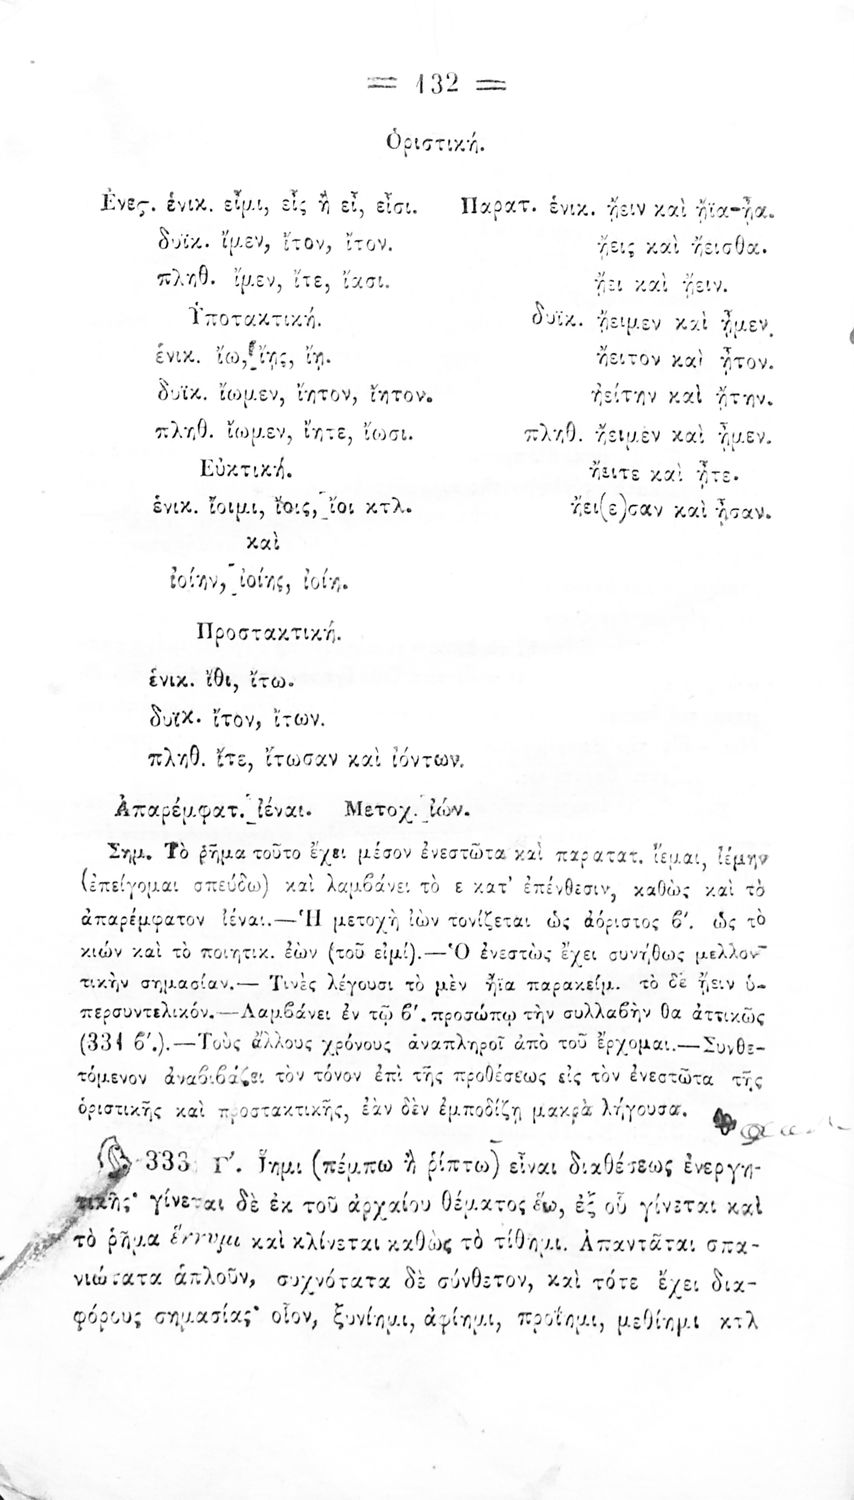 = 132 =
Ὁριστική.
Ἐνες. ἑνικ. εἶμι, εἶς ἢ εἶ, εἶσι.
δυϊκ. ἴμεν, ἴτον, ἴτον.
πληθ. ἴμεν, ἴτε, ἴασι.
Ὑποτακτική.
ἑνικ. ἴω, ἴῃς, ἴῃ.
δυϊκ. ἴωμεν, ἴητον, ἴητον.
πληθ. ἴωμεν, ἴητε, ἴωσι.
Εὐκτική.
ἑνικ. ἴοιμι, ἴοις, ἴοι κτλ.
καὶ
ἰοίην, ἰοίης, ἰοίη.
Προστακτική.
ἑνικ. ἴθι, ἴτω.
δυϊκ. ἴτον, ἴτων.
πληθ. ἴτε, ἴτωσαν καὶ ἰόντων.
Παρατ. ἑνικ. ᾔειν καὶ ᾔϊα-ᾖα.
ᾔεις καὶ ᾔεισθα.
ᾔει καὶ ᾔειν.
δυϊκ. ᾔειμεν καὶ ᾖμεν.
ᾔειτον καὶ ᾖτον.
ᾐείτην καὶ ᾔτην.
πληθ. ᾔειμεν καὶ ᾖμεν.
ᾔειτε καὶ ᾖτε.
ᾔει(ε)σαν καὶ ᾖσαν.
Ἀπαρέμφατ. ἰέναι. Μετοχ. ἰών.
Σημ. Τὸ ῥῆμα τοῦτο ἔχει μέσον ἐνεστῶτα καὶ παρατατ. ἵεμαι, ἱέμην
(ἐπείγομαι σπεύδω) καὶ λαμβάνει τὸ ε κατ’ ἐπένθεσιν, καθὼς καὶ τὸ
ἀπαρέμφατον ἰέναι.—Ἡ μετοχὴ ἰὼν τονίζεται ὡς ἀόριστος β΄. ὡς τὸ
κιών καὶ τὸ ποιητικ. ἐὼν (τοῦ εἰμί).—Ὁ ἐνεστὼς ἔχει συνήθως μελλον-
τικὴν σημασίαν.— Τινὲς λέγουσι τὸ μὲν ᾖϊα παρακείμ. τὸ δὲ ᾔειν ὑ-
περσυντελικόν.—Λαμβάνει ἐν τῷ β΄. προσώπῳ τὴν συλλαβὴν θα ἀττικῶς
(331 β΄.).—Τοὺς ἄλλους χρόνους ἀναπληροῖ ἀπὸ τοῦ ἔρχομαι.—Συνθε-
τόμενον ἀναβιβάζει τὸν τόνον ἐπὶ τῆς προθέσεως εἰς τὸν ἐνεστῶτα τῆς
ὁριστικῆς καὶ προστακτικῆς, ἐὰν δὲν ἐμποδίζῃ μακρὰ λήγουσα.
333 Γ΄. Ἵημι (πέμπω ἢ ῥίπτω) εἶναι διαθέσεως ἐνεργη-
τικῆς· γίνεται δὲ ἐκ τοῦ ἀρχαίου θέματος ἕω, ἐξ οὗ γίνεται καὶ
τὸ ῥῆμα ἕννυμι καὶ κλίνεται καθὼς τὸ τίθημι. Ἀπαντᾶται σπα-
νιώτατα ἁπλοῦν, συχνότατα δὲ σύνθετον, καὶ τότε ἔχει δια-
φόρους σημασίας· οἷον, ξυνίημι, ἀφίημι, προΐημι, μεθίημι κτλ